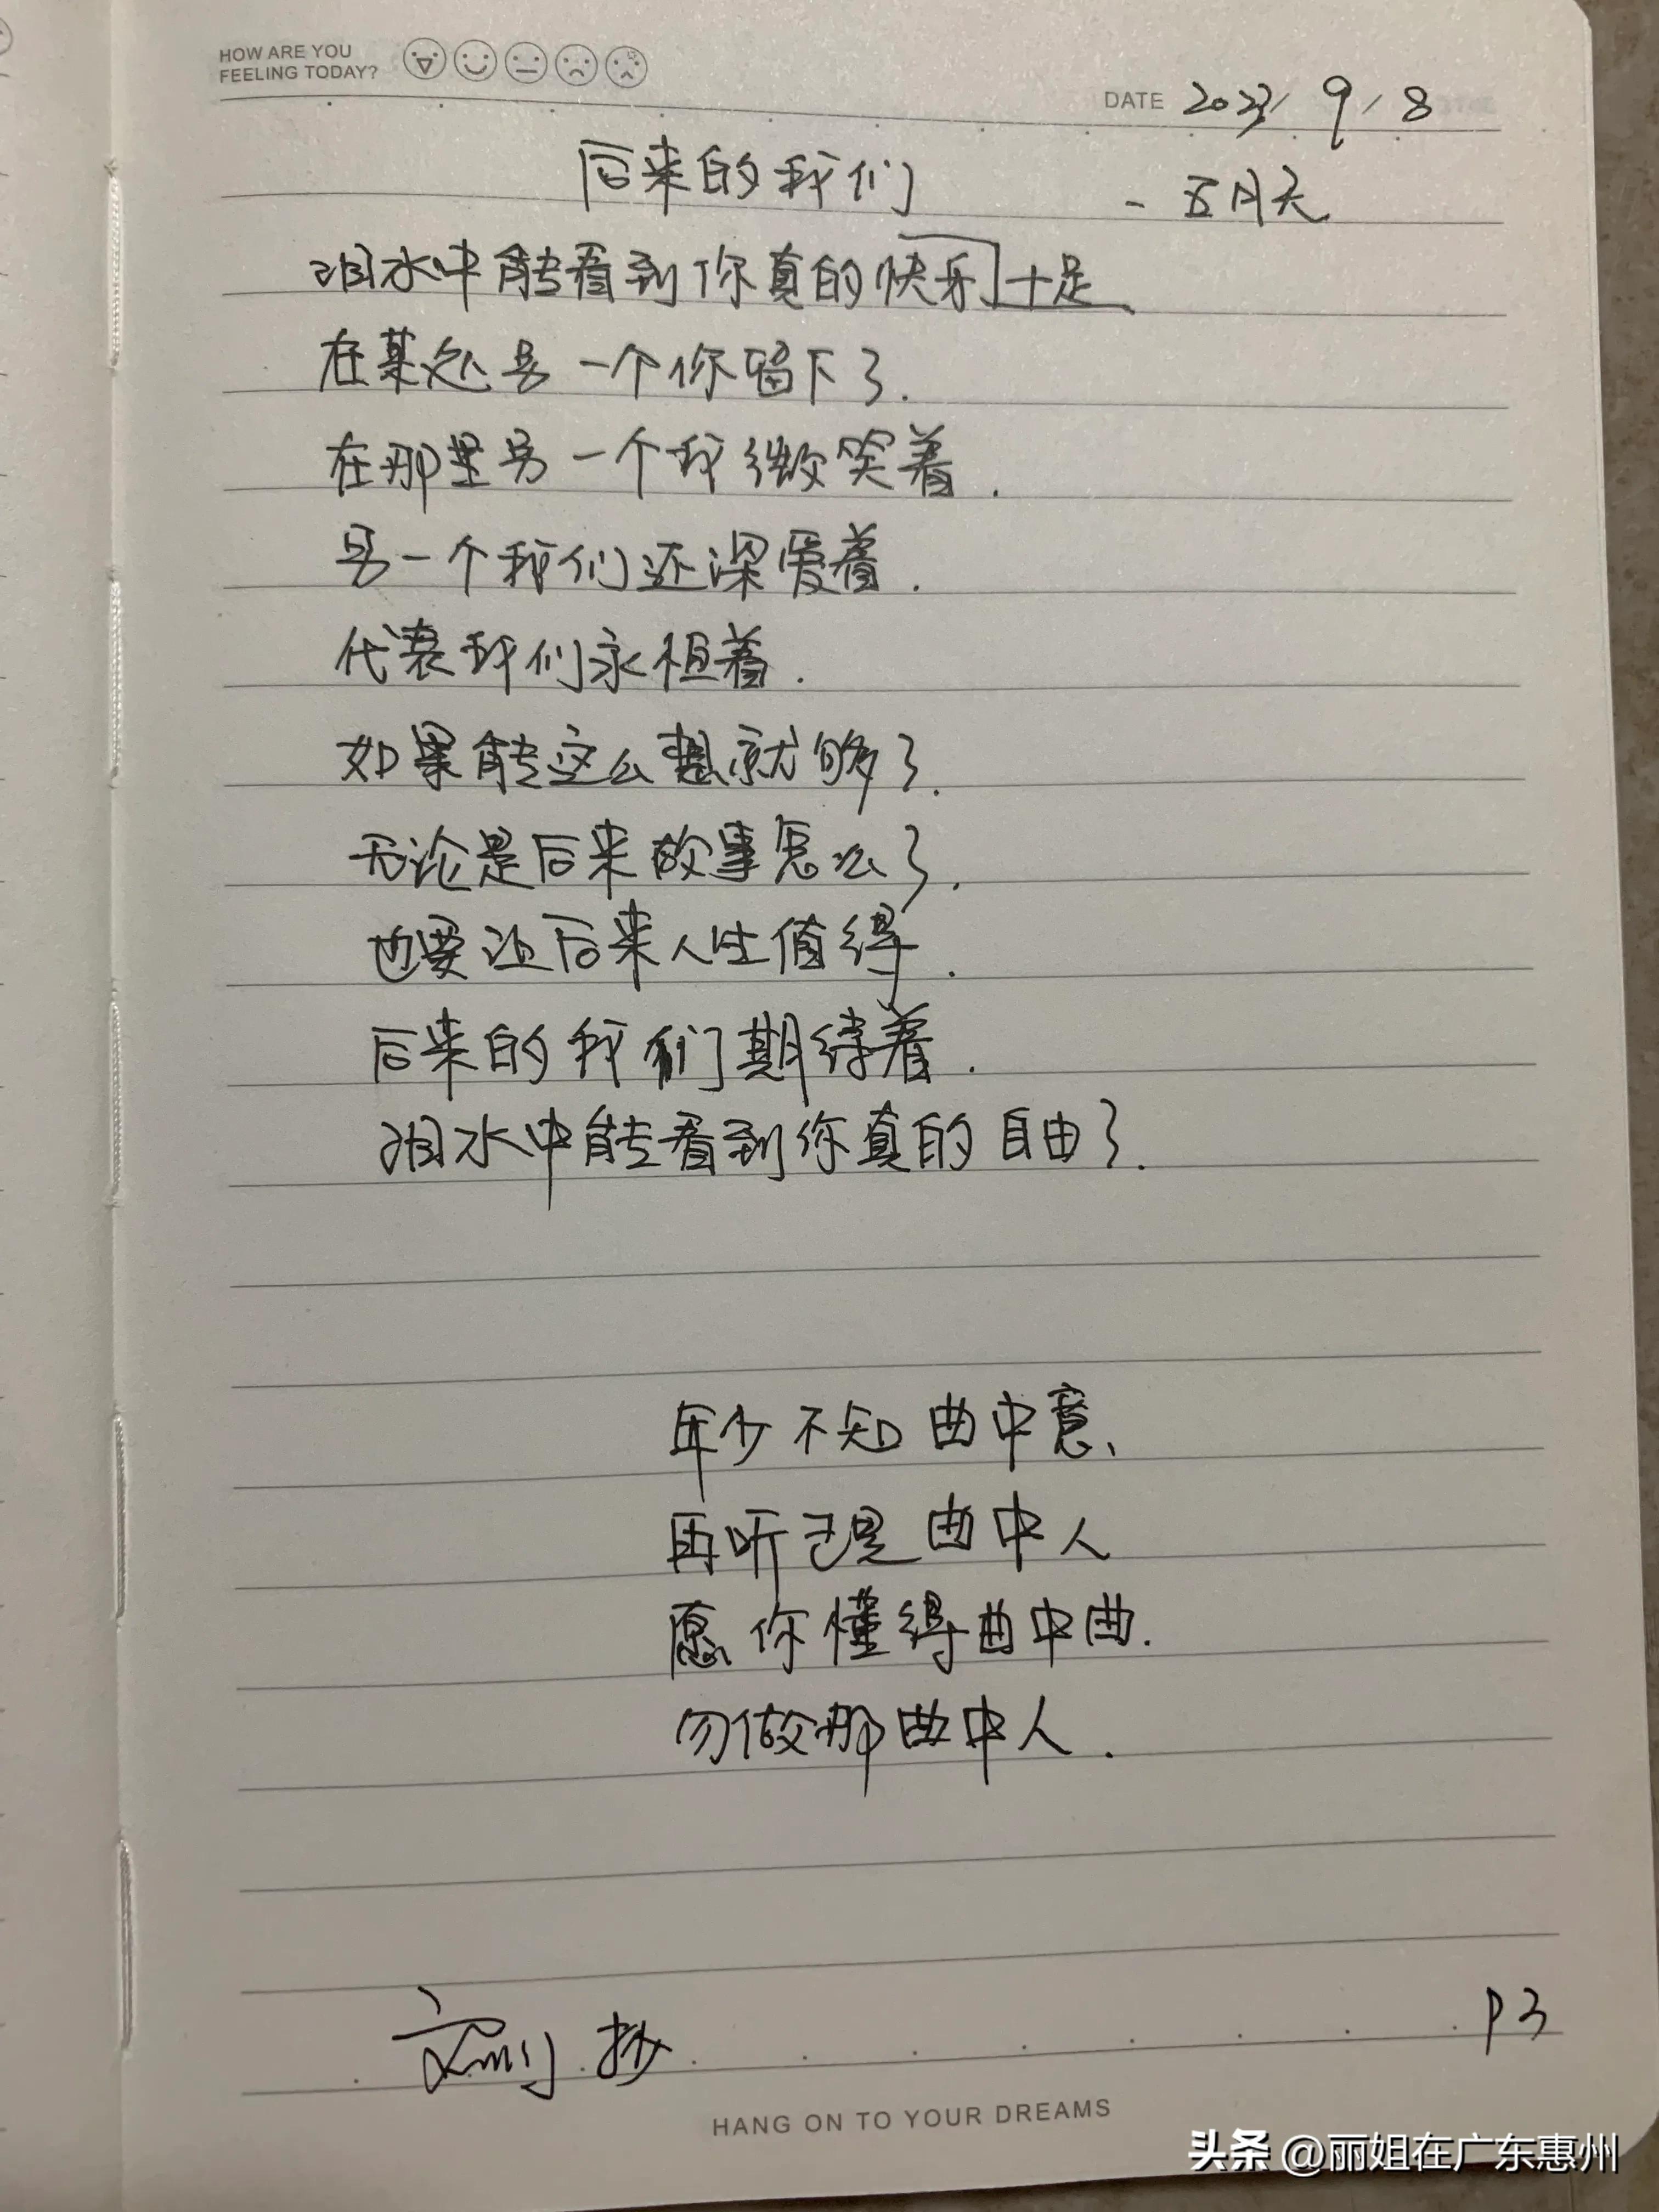 HOW ARE YOU
FEELING TODAY?
DATE 2023/9/8
后来的我们 - 五月天
泪水中能看到你真的快乐十足
在某处另一个你留下了.
在那里另一个我微笑着.
另一个我们还深爱着.
代表我们永恒着.
如果能这么想就够了.
无论是后来故事怎么了.
也要让后来人生值得.
后来的我们期待着.
泪水中能看到你真的自由了.
年少不知曲中意、
再听已是曲中人
愿你懂得曲中曲.
勿做那曲中人.
抄 P3
HANG ON TO YOUR DREAMS
头条 @丽姐在广东惠州